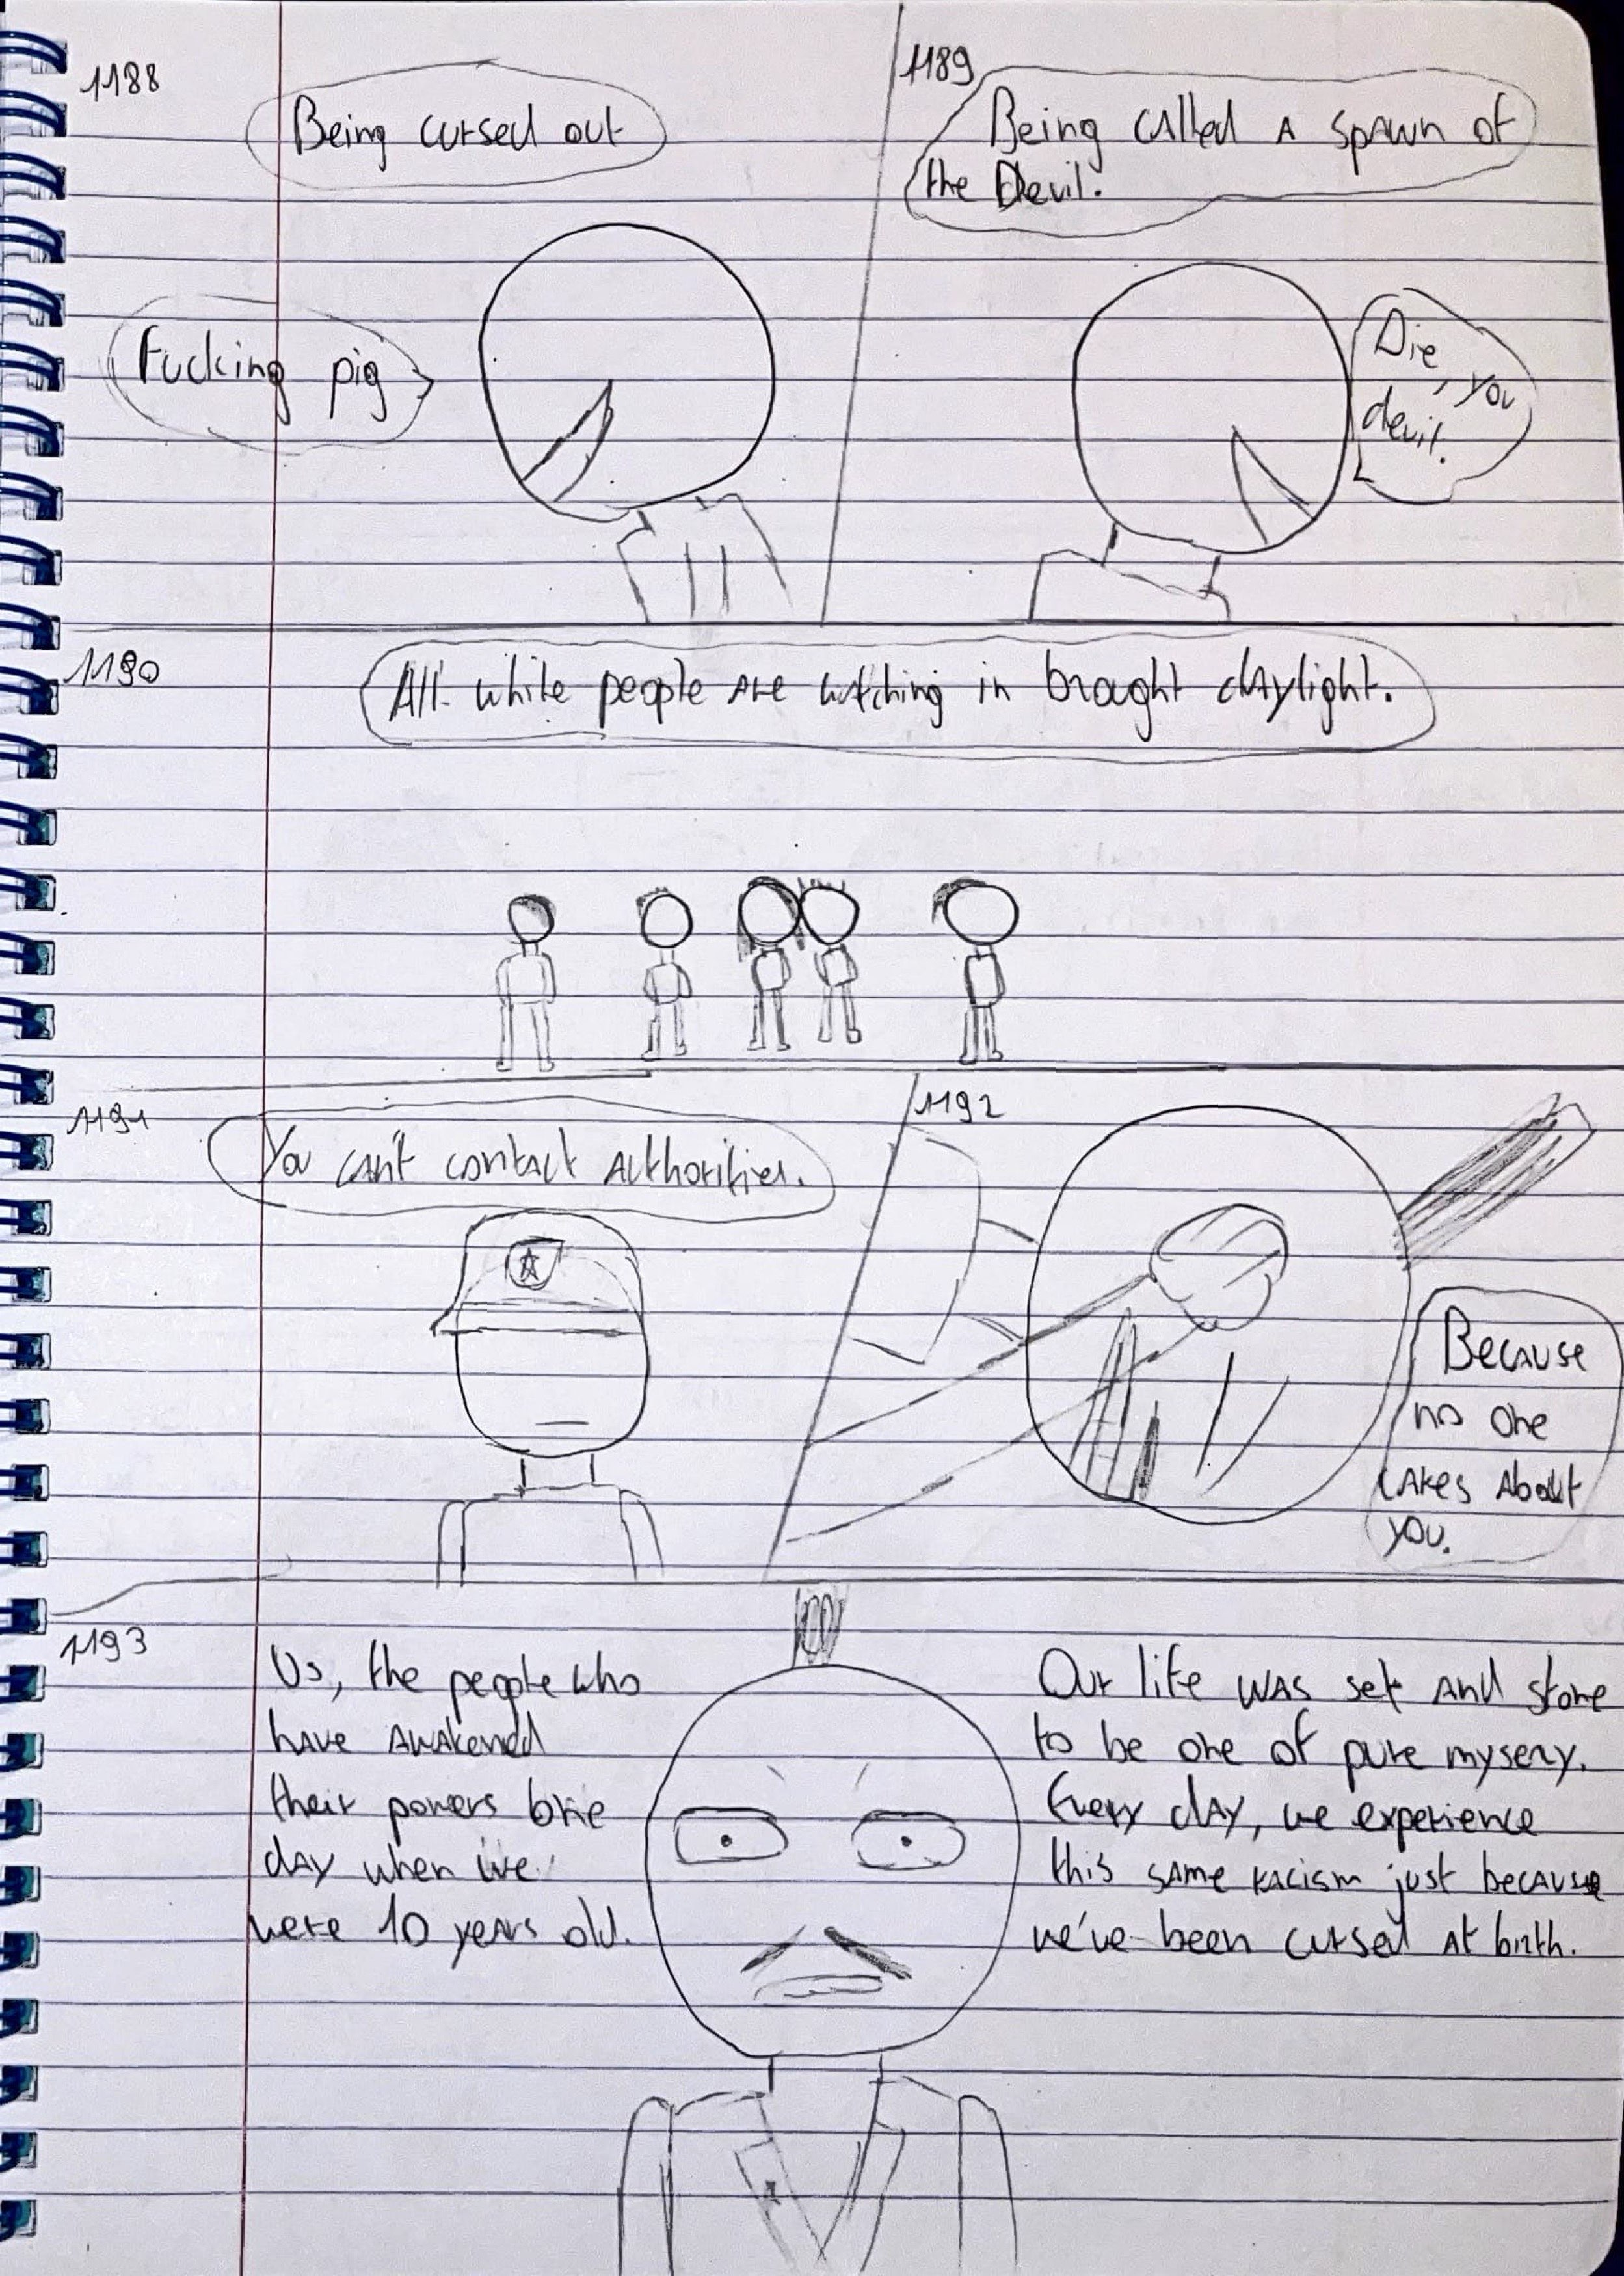 1188
Being cursed out
Fucking pig
1189
Being called a spawn of
the Devil.
Die, you
devil!
1190
All white people are watching in brought daylight.
1191
You can't contact authorities.
1192
Because
no one
cares about
you.
1193
Us, the people who
have awakened
their powers one
day when we
were 10 years old.
Our life was set and stone
to be one of pure mysery.
Every day, we experience
this same racism just because
we've been cursed at birth.